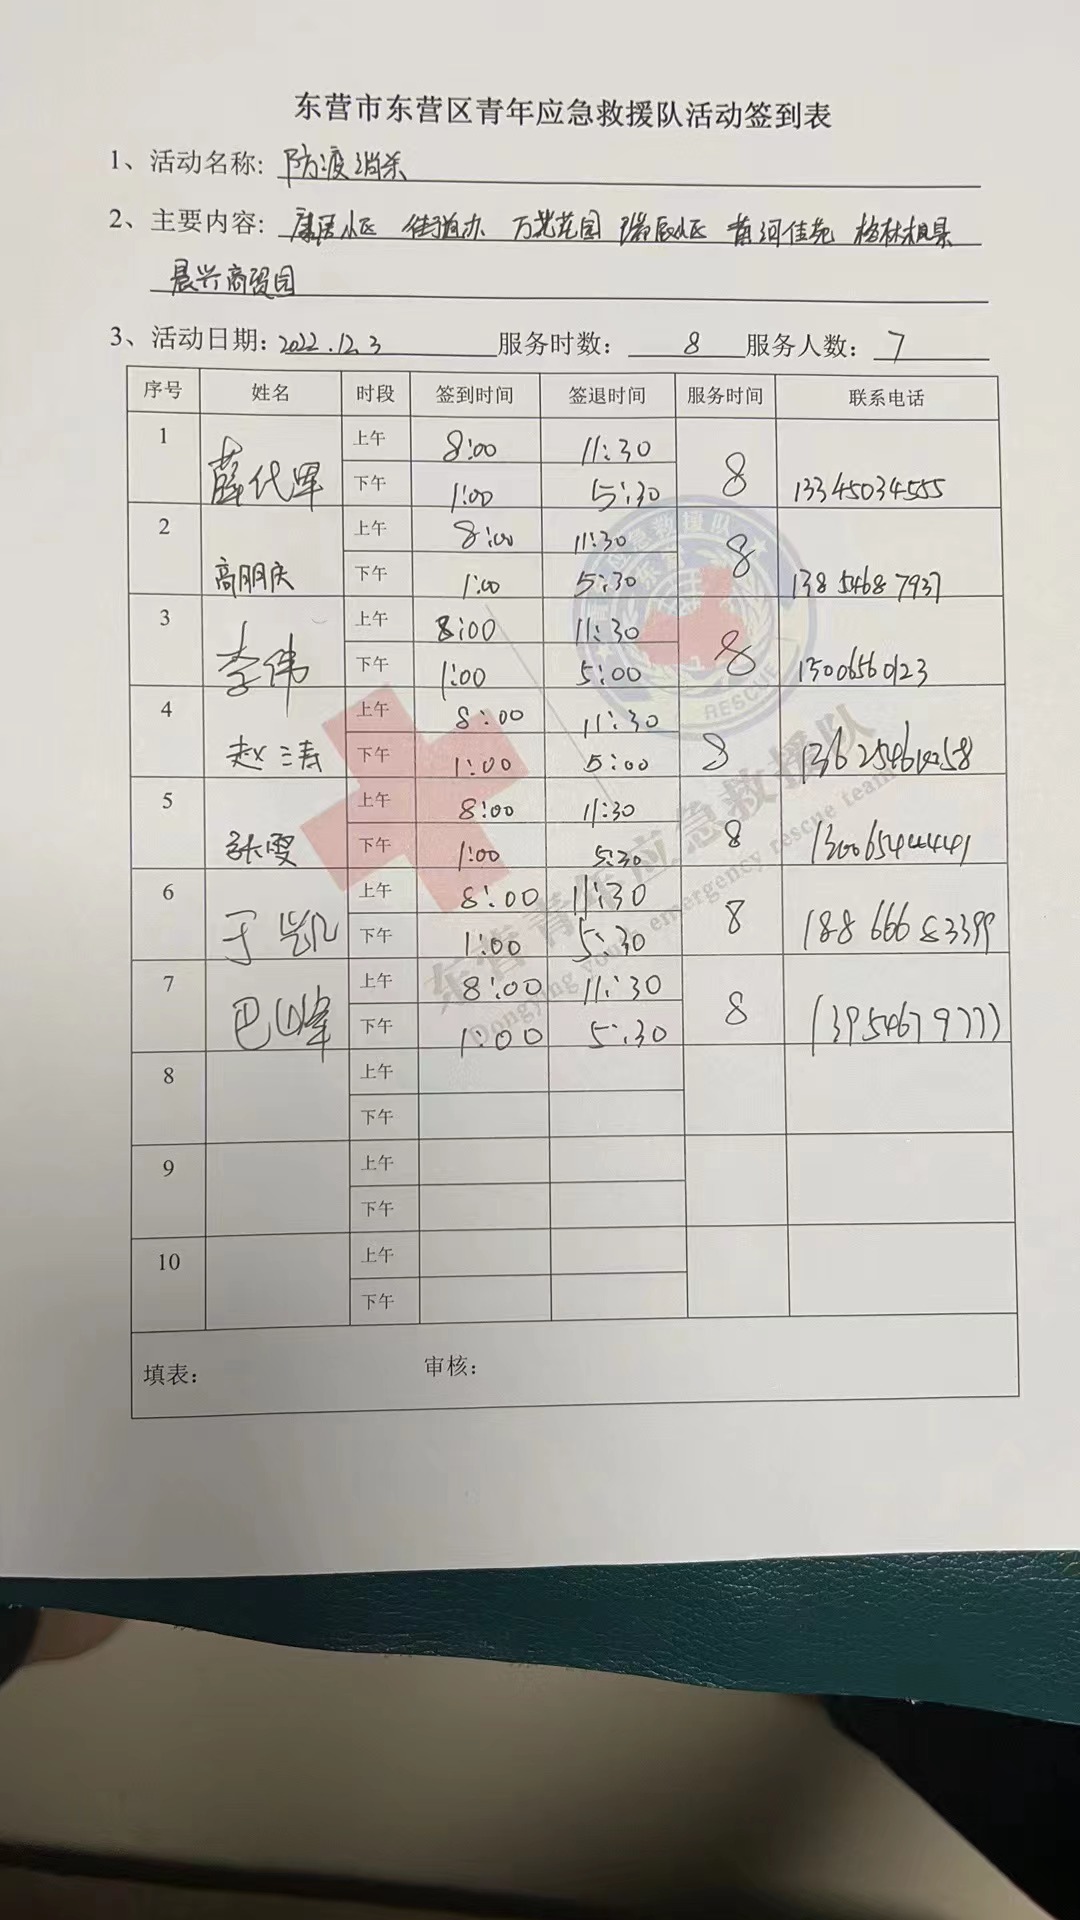 东营市东营区青年应急救援队活动签到表
1、活动名称: 防疫消杀
2、主要内容: 康居小区 街道办 万芳花园 瑞辰小区 黄河佳苑 格林枫景
晨兴商贸园
3、活动日期: 2022.12.3 服务时数: 8 服务人数: 7
序号 姓名 时段 签到时间 签退时间 服务时间 联系电话
1 薛代军 上午 8:00 11:30 8 13345034555
下午 1:00 5:30
2 高朋庆 上午 8:00 11:30 8 13854687937
下午 1:00 5:30
3 李伟 上午 8:00 11:30 8 13006560123
下午 1:00 5:00
4 赵涛 上午 8:00 11:30 8
下午 1:00 5:00
5 张雯 上午 8:00 11:30 8 13006544441
下午 1:00 5:30
6 于凯 上午 8:00 11:30 8 18866683399
下午 1:00 5:30
7 巴山峰 上午 8:00 11:30 8 13954679777
下午 1:00 5:30
8 上午
下午
9 上午
下午
10 上午
下午
填表: 审核:
东营青年应急救援队
Dongying youth emergency rescue team
RESCUE